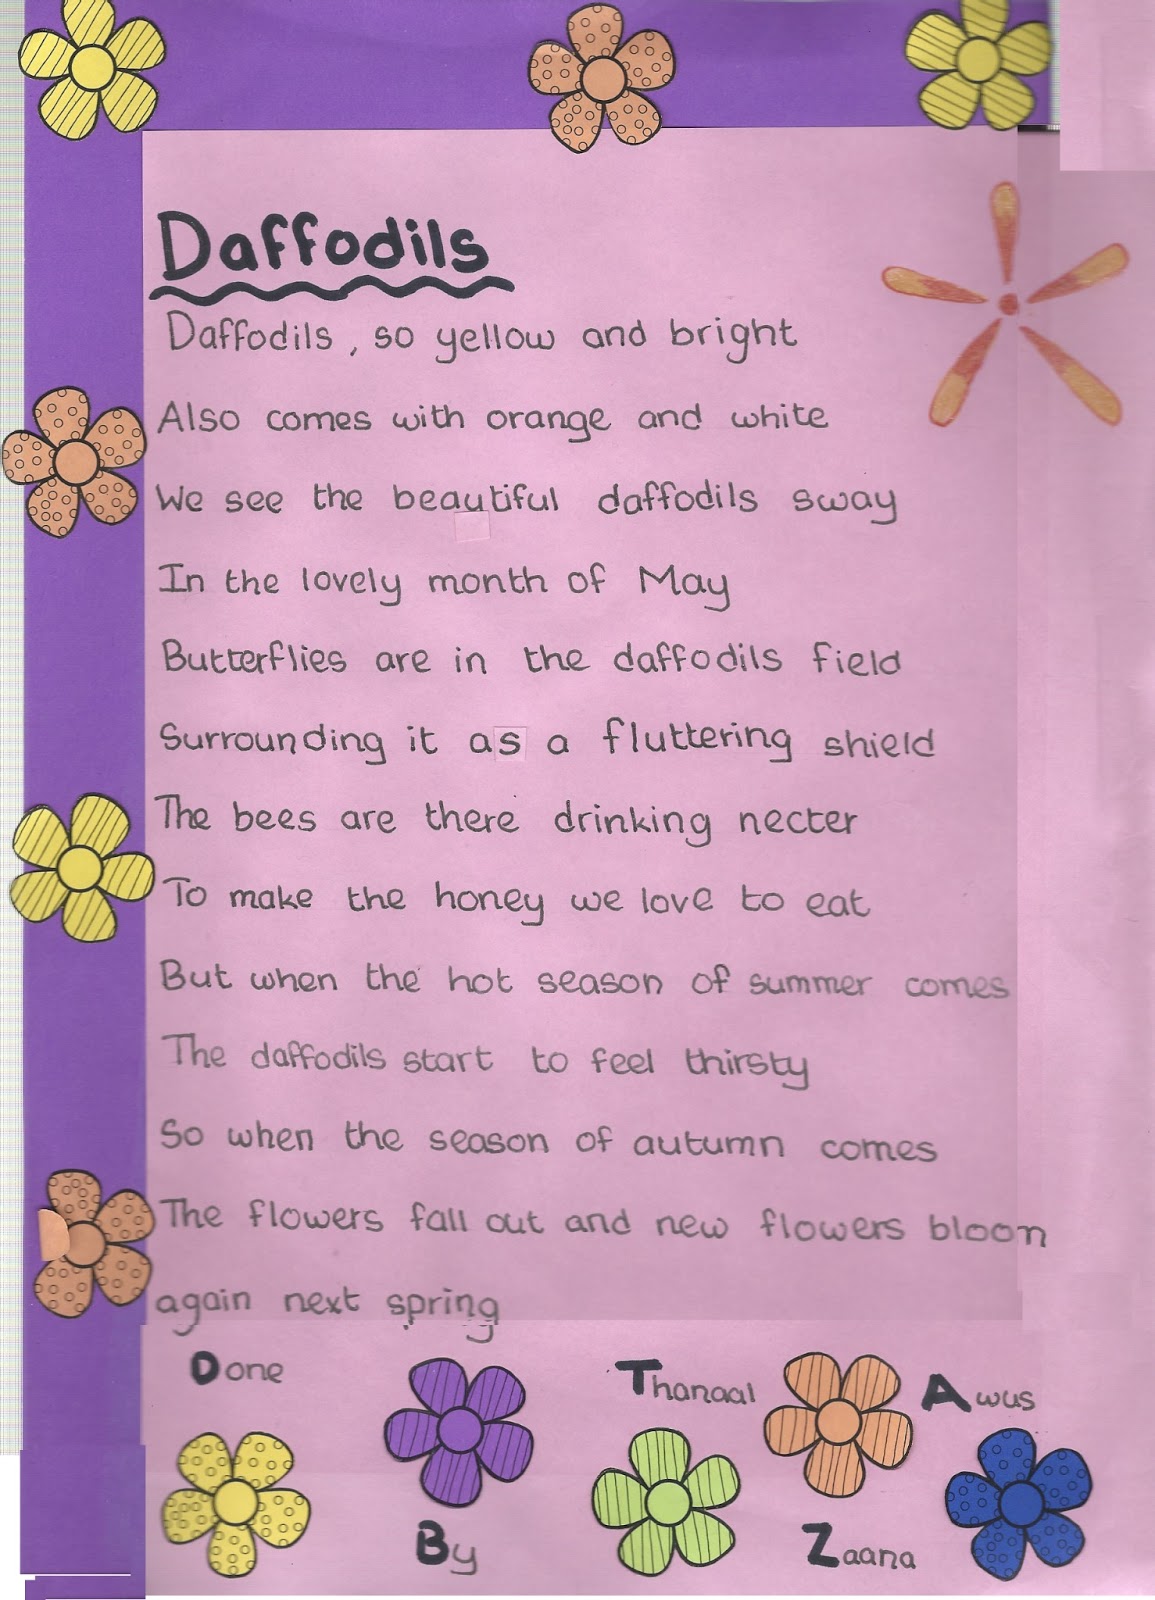 Daffodils
Daffodils, so yellow and bright
Also comes with orange and white
We see the beautiful daffodils sway
In the lovely month of May
Butterflies are in the daffodils field
Surrounding it as a fluttering shield
The bees are there drinking necter
To make the honey we love to eat
But when the hot season of summer comes
The daffodils start to feel thirsty
So when the season of autumn comes
The flowers fall out and new flowers bloon
again next spring
Done By Thanaal Zaana Awus